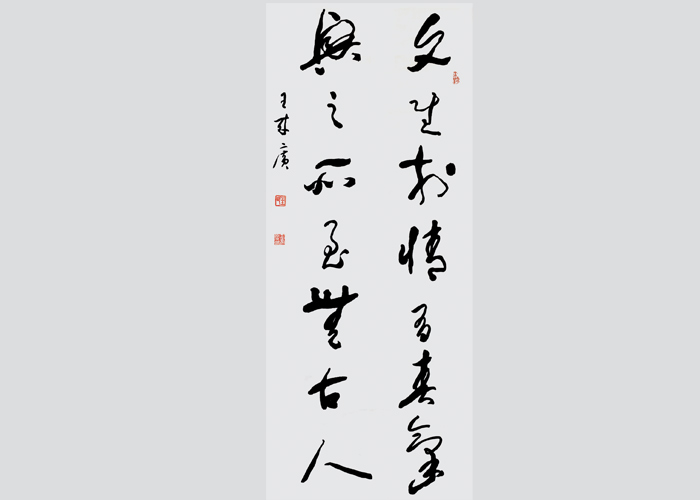 文生於情有春氣
興之所至無古人
王廣